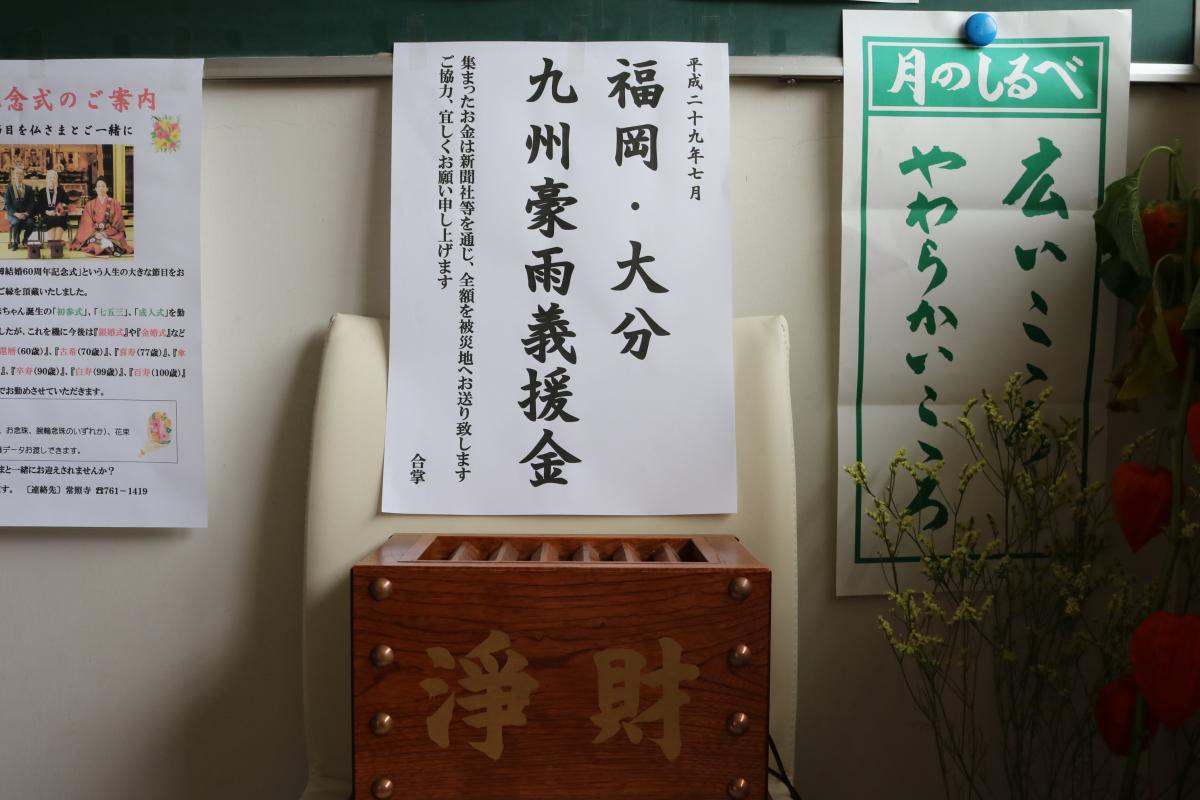 念式のご案内
節目を仏さまとご一緒に
御結婚60周年記念式」という人生の大きな節目をお
ご縁を頂戴いたしました。
ちゃん誕生の「初参式」、「七五三」、「成人式」を勤
したが、これを機に今後は『銀婚式』や『金婚式』など
還暦(60歳)』、『古希(70歳)』、『喜寿(77歳)』、『傘
』、『卒寿(90歳)』、『白寿(99歳)』、『百寿(100歳)』
でお勤めさせていただきます。
、お念珠、腕輪念珠のいずれか)、花束
データお渡しできます。
まと一緒にお迎えされませんか?
す。 〔連絡先〕常照寺 ☎761-1419
平成二十九年七月
福岡・大分
九州豪雨義援金
集まったお金は新聞社等を通じ、全額を被災地へお送り致します
ご協力、宜しくお願い申し上げます
合掌
月のしるべ
広いこころ
やわらかいこころ
淨財